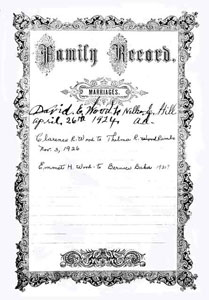 Family Record.
MARRIAGES.
David L. Wood to Nellie Hill
April 26th 1924
Clarence R. Wood to Thelma R.
Nov. 3, 1926
Emmett H. Wood to Bernice Baker 1931